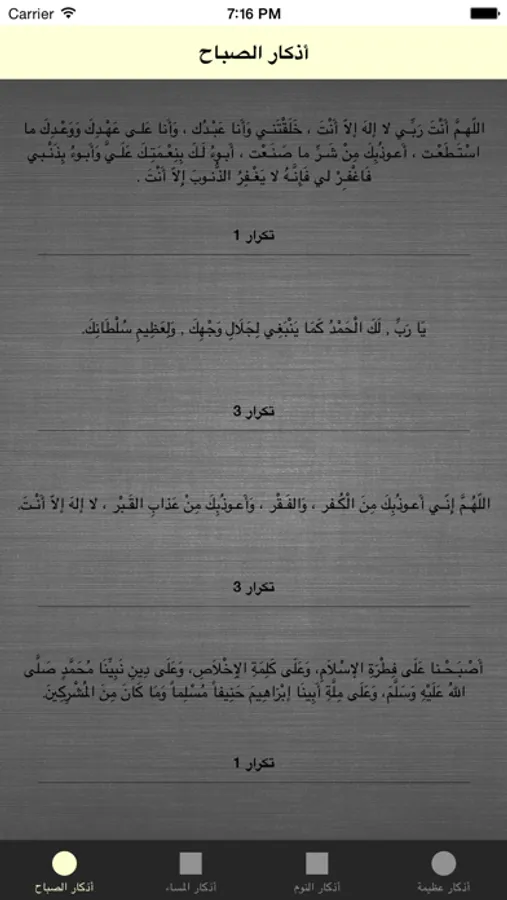 Carrier 7:16 PM
أذكار الصباح
اللّهمَّ أَنْتَ رَبِّـي لا إلهَ إلاّ أَنْتَ ، خَلَقْتَنـي وَأَنا عَبْـدُك ، وَأَنا عَلـى عَهْـدِكَ وَوَعْـدِكَ ما
اسْتَـطَعْـت ، أَعـوذُبِكَ مِنْ شَـرِّ ما صَنَـعْت ، أَبـوءُ لَـكَ بِنِعْـمَتِـكَ عَلَـيَّ وَأَبـوءُ بِذَنْـبي
فَاغْفِـرْ لي فَإِنَّـهُ لا يَغْـفِرُ الذُّنـوبَ إِلاّ أَنْتَ .
تكرار 1
يَا رَبِّ , لَكَ الْحَمْدُ كَمَا يَنْبَغِي لِجَلَالِ وَجْهِكَ , وَلِعَظِيمِ سُلْطَانِكَ.
تكرار 3
اللّهُـمَّ إِنّـي أَعـوذُبِكَ مِنَ الْكُـفر ، وَالفَـقْر ، وَأَعـوذُبِكَ مِنْ عَذابِ القَـبْر ، لا إلهَ إلاّ أَنْـتَ.
تكرار 3
أَصْبَـحْـنا عَلَى فِطْرَةِ الإسْلاَمِ، وَعَلَى كَلِمَةِ الإِخْلاَصِ، وَعَلَى دِينِ نَبِيِّنَا مُحَمَّدٍ صَلَّى
اللهُ عَلَيْهِ وَسَلَّمَ، وَعَلَى مِلَّةِ أَبِينَا إبْرَاهِيمَ حَنِيفاً مُسْلِماً وَمَا كَانَ مِنَ المُشْرِكِينَ.
تكرار 1
أذكار عظيمة أذكار النوم أذكار المساء أذكار الصباح